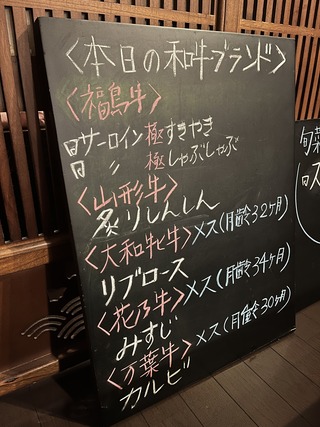 〈本日の和牛ブランド〉
〈福島牛〉
サーロイン極すきやき
〃 極しゃぶしゃぶ
〈山形牛〉
炙りしんしん
〈大和牝牛〉メス(月齢32ヶ月)
リブロース
〈花乃牛〉メス(月齢34ヶ月)
みすじ
〈万葉牛〉メス(月齢30ヶ月)
カルビ
旬菜